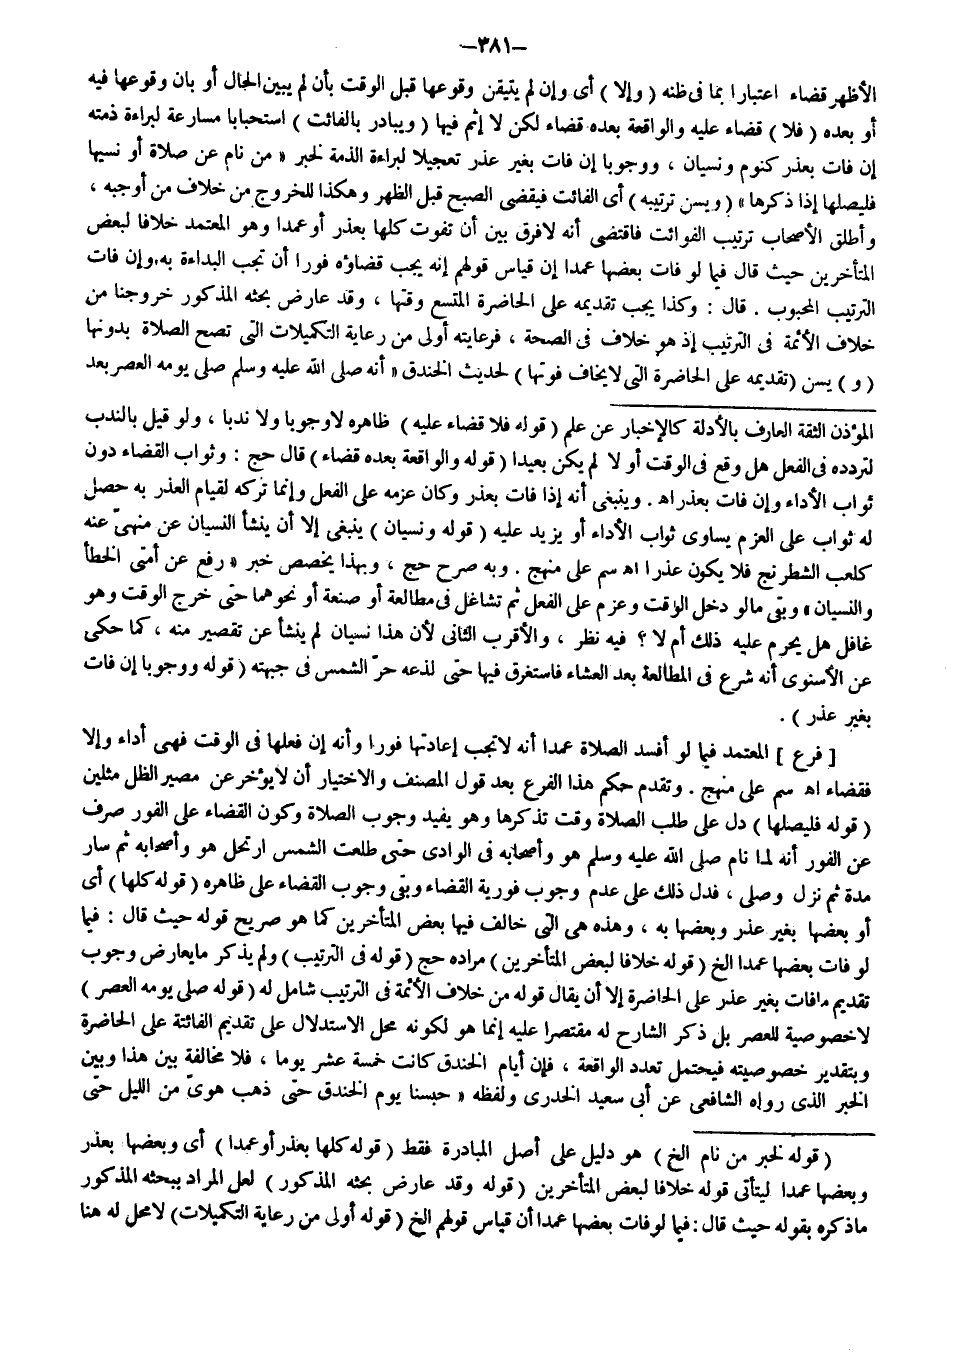 —٣٨١—
الأظهر قضاء اعتبارا بما فى ظنه ( وإلا ) أى وإن لم يتيقن وقوعها قبل الوقت بأن لم يبين الحال أو بان وقوعها فيه
أو بعده ( فلا ) قضاء عليه والواقعة بعده قضاء لكن لا إثم فيها ( ويبادر بالفائت ) استحبابا مسارعة لبراءة ذمته
إن فات بعذر كنوم ونسيان ، ووجوبا إن فات بغير عذر تعجيلا لبراءة الذمة لخبر « من نام عن صلاة أو نسيها
فليصلها إذا ذكرها » ( ويسن ترتيبه ) أى الفائت فيقضى الصبح قبل الظهر وهكذا للخروج من خلاف من أوجبه ،
وأطلق الأصحاب ترتيب الفوائت فاقتضى أنه لافرق بين أن تفوت كلها بعذر أو عمدا وهو المعتمد خلافا لبعض
المتأخرين حيث قال فيما لو فات بعضها عمدا إن قياس قولهم إنه يجب قضاؤه فورا أن تجب البداءة به وإن فات
الترتيب المحبوب . قال : وكذا يجب تقديمه على الحاضرة المتسع وقتها ، وقد عارض بحثه المذكور خروجنا من
خلاف الأئمة فى الترتيب إذ هو خلاف فى الصحة ، فرعايته أولى من رعاية التكميلات التى تصح الصلاة بدونها
( و ) يسن ( تقديمه على الحاضرة التى لا يخاف فوتها ) لحديث الخندق « أنه صلى الله عليه وسلم صلى يومه العصر بعد
المؤذن الثقة العارف بالأدلة كالإخبار عن علم ( قوله فلا قضاء عليه ) ظاهره لاوجوبا ولا ندبا ، ولو قيل بالندب
لتردده فى الفعل هل وقع فى الوقت أو لا لم يكن بعيدا ( قوله والواقعة بعده قضاء ) قال حج : وثواب القضاء دون
ثواب الأداء وإن فات بعذر اه . وينبغى أنه إذا فات بعذر وكان عزمه على الفعل وإنما تركه لقيام العذر به حصل
له ثواب على العزم يساوى ثواب الأداء أو يزيد عليه ( قوله ونسيان ) ينبغى إلا أن ينشأ النسيان عن منهىّ عنه
كلعب الشطرنج فلا يكون عذرا اه سم على منهج . وبه صرح حج ، وبهذا يخصص خبر « رفع عن أمتى الخطأ
والنسيان » وبقى مالو دخل الوقت وعزم على الفعل ثم تشاغل فى مطالعة أو صنعة أو نحوهما حتى خرج الوقت وهو
غافل هل يحرم عليه ذلك أم لا ؟ فيه نظر ، والأقرب الثانى لأن هذا نسيان لم ينشأ عن تقصير منه ، كما حكى
عن الأسنوى أنه شرع فى المطالعة بعد العشاء فاستغرق فيها حتى لذعه حرّ الشمس فى جبهته ( قوله ووجوبا إن فات
بغير عذر ) .
[ فرع ] المعتمد فيما لو أفسد الصلاة عمدا أنه لاتجب إعادتها فورا وأنه إن فعلها فى الوقت فهى أداء وإلا
فقضاء اه سم على منهج . وتقدم حكم هذا الفرع بعد قول المصنف والاختيار أن لايؤخر عن مصير الظل مثلين
( قوله فليصلها ) دل على طلب الصلاة وقت تذكرها وهو يفيد وجوب الصلاة وكون القضاء على الفور صرف
عن الفور أنه لما نام صلى الله عليه وسلم هو وأصحابه فى الوادى حتى طلعت الشمس ارتحل هو وأصحابه ثم سار
مدة ثم نزل وصلى ، فدل ذلك على عدم وجوب فورية القضاء وبقى وجوب القضاء على ظاهره ( قوله كلها ) أى
أو بعضها بغير عذر وبعضها به ، وهذه هى التى خالف فيها بعض المتأخرين كما هو صريح قوله حيث قال : فيما
لو فات بعضها عمدا الخ ( قوله خلافا لبعض المتأخرين ) مراده حج ( قوله فى الترتيب ) ولم يذكر مايعارض وجوب
تقديم مافات بغير عذر على الحاضرة إلا أن يقال قوله من خلاف الأئمة فى الترتيب شامل له ( قوله صلى يومه العصر )
لاخصوصية للعصر بل ذكر الشارح له مقتصرا عليه إنما هو لكونه محل الاستدلال على تقديم الفائتة على الحاضرة
وبتقدير خصوصيته فيحتمل تعدد الواقعة ، فإن أيام الخندق كانت خمسة عشر يوما ، فلا مخالفة بين هذا وبين
الخبر الذى رواه الشافعى عن أبى سعيد الخدرى ولفظه « حبسنا يوم الخندق حتى ذهب هوىّ من الليل حتى
( قوله لخبر من نام الخ ) هو دليل على أصل المبادرة فقط ( قوله كلها بعذر أو عمدا ) أى وبعضها بعذر
وبعضها عمدا ليتأتى قوله خلافا لبعض المتأخرين ( قوله وقد عارض بحثه المذكور ) لعل المراد ببحثه المذكور
ماذكره بقوله حيث قال : فيما لو فات بعضها عمدا أن قياس قولهم الخ ( قوله أولى من رعاية التكميلات ) لامحل له هنا